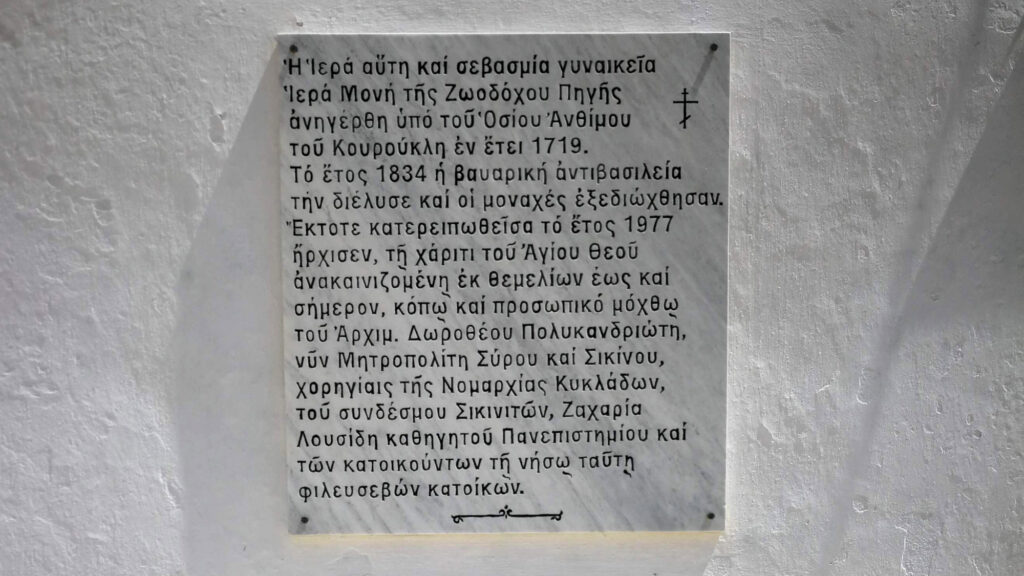 Ἡ Ἱερά αὕτη καί σεβασμία γυναικεῖα
Ἱερά Μονή τῆς Ζωοδόχου Πηγῆς
ἀνηγέρθη ὑπό τοῦ Ὁσίου Ἀνθίμου
τοῦ Κουρούκλη ἐν ἔτει 1719.
Τό ἔτος 1834 ἡ βαυαρική ἀντιβασιλεία
τήν διέλυσε καί οἱ μοναχές ἐξεδιώχθησαν.
Ἔκτοτε κατερειπωθεῖσα τό ἔτος 1977
ἤρχισεν, τῇ χάριτι τοῦ Ἁγίου Θεοῦ
ἀνακαινιζομένη ἐκ θεμελίων ἕως καί
σήμερον, κόπῳ καί προσωπικό μόχθῳ
τοῦ Ἀρχιμ. Δωροθέου Πολυκανδριώτη,
νῦν Μητροπολίτη Σύρου καί Σικίνου,
χορηγίαις τῆς Νομαρχίας Κυκλάδων,
τοῦ συνδέσμου Σικινιτῶν, Ζαχαρία
Λουσίδη καθηγητοῦ Πανεπιστημίου καί
τῶν κατοικούντων τῇ νήσῳ ταῦτῃ
φιλευσεβών κατοίκων.